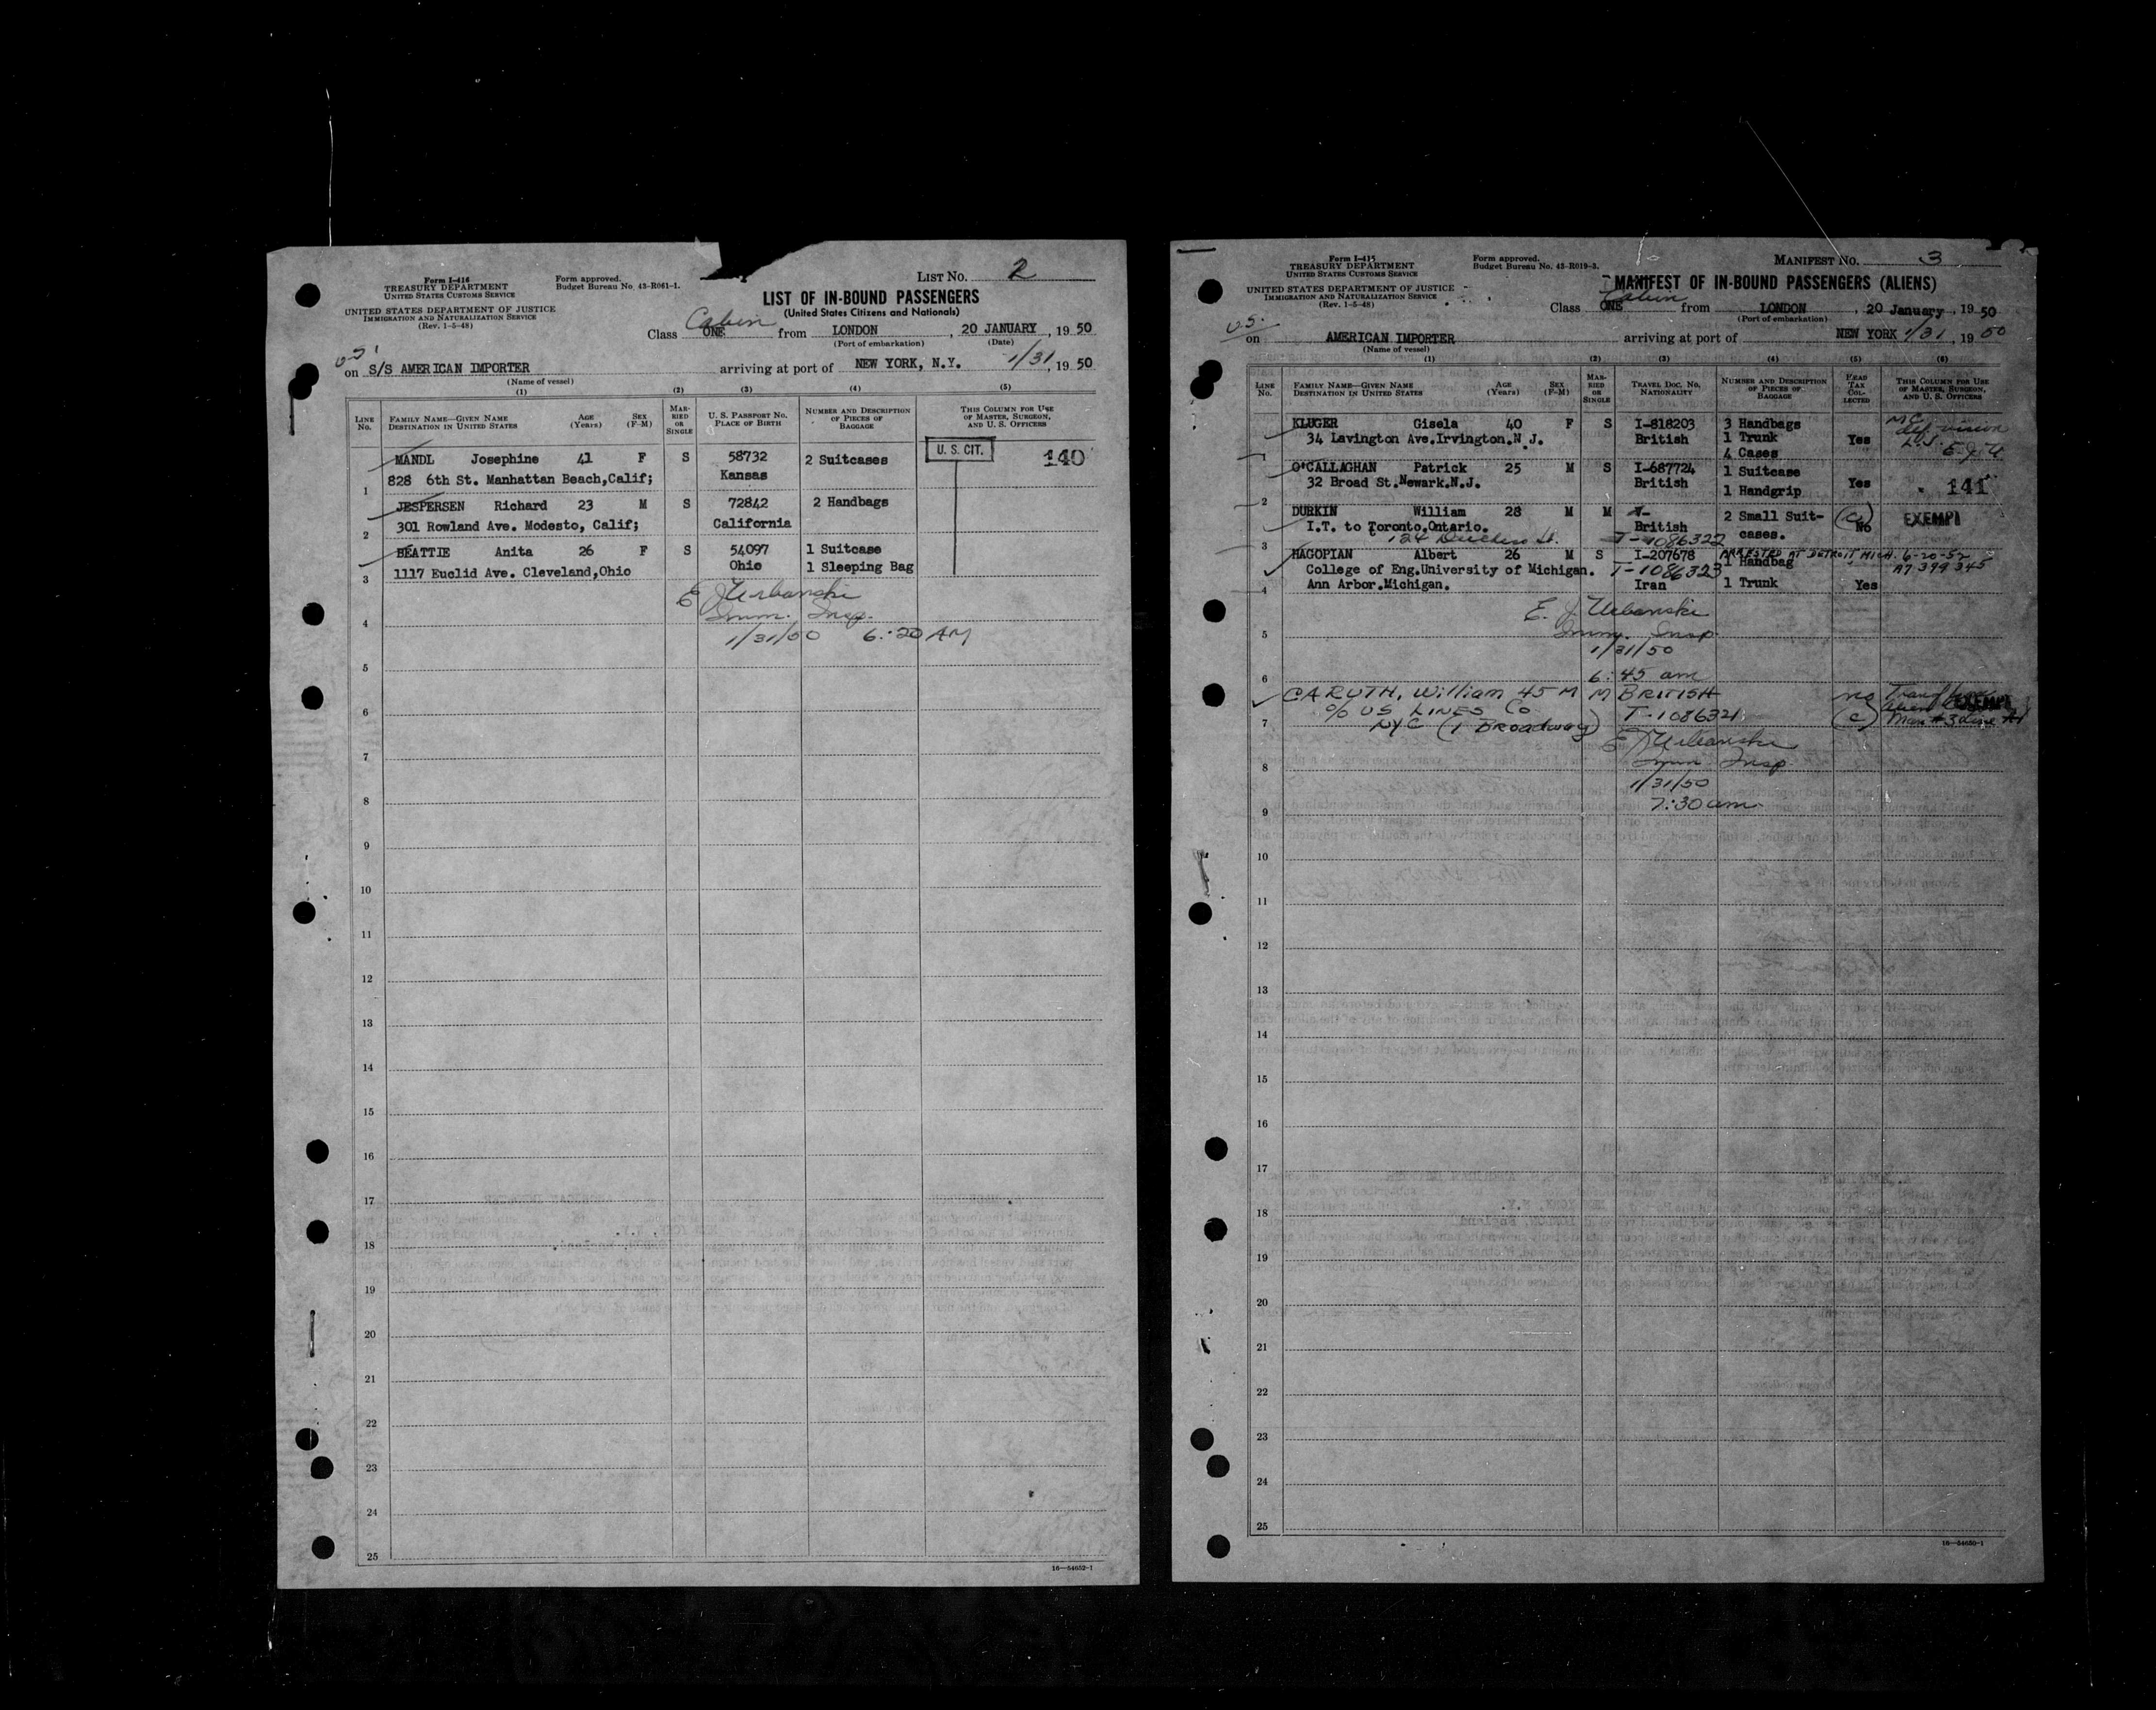 Form I-416
TREASURY DEPARTMENT
UNITED STATES CUSTOMS SERVICE
Form approved.
Budget Bureau No. 43-R061-1.
LIST NO. 2
UNITED STATES DEPARTMENT OF JUSTICE
IMMIGRATION AND NATURALIZATION SERVICE
(Rev. 1-5-48)
LIST OF IN-BOUND PASSENGERS
(United States Citizens and Nationals)
Cabin
Class ONE from LONDON, 20 JANUARY, 19 50
(Port of embarkation) (Date)
U.S.
on S/S AMERICAN IMPORTER arriving at port of NEW YORK, N.Y. 1/31, 19 50
(Name of vessel)
(1) (2) (3) (4) (5)
LINE No. FAMILY NAME—GIVEN NAME DESTINATION IN UNITED STATES AGE (Years) SEX (F-M) MARRIED OR SINGLE U. S. PASSPORT NO. PLACE OF BIRTH NUMBER AND DESCRIPTION OF PIECES OF BAGGAGE THIS COLUMN FOR USE OF MASTER, SURGEON, AND U. S. OFFICERS
U. S. CIT. 140
MANDL Josephine 41 F S 58732 2 Suitcases
1 828 6th St. Manhattan Beach,Calif; Kansas
JESPERSEN Richard 23 M S 72842 2 Handbags
2 301 Rowland Ave. Modesto, Calif; California
BEATTIE Anita 26 F S 54097 1 Suitcase
3 1117 Euclid Ave. Cleveland,Ohio Ohio 1 Sleeping Bag
E J Urbanski
Imm. Insp.
4 1/31/50 6:20 AM
5
6
7
8
9
10
11
12
13
14
15
16
17
18
19
20
21
22
23
24
25
16—54652-1
Form I-415
TREASURY DEPARTMENT
UNITED STATES CUSTOMS SERVICE
Form approved.
Budget Bureau No. 43-R019-3.
MANIFEST NO. 3
UNITED STATES DEPARTMENT OF JUSTICE
IMMIGRATION AND NATURALIZATION SERVICE
(Rev. 1-5-48)
MANIFEST OF IN-BOUND PASSENGERS (ALIENS)
Cabin
Class ONE from LONDON, 20 January, 19 50
(Port of embarkation)
U.S.
on AMERICAN IMPORTER arriving at port of NEW YORK 1/31, 19 50
(Name of vessel)
(1) (2) (3) (4) (5) (6)
LINE No. FAMILY NAME—GIVEN NAME DESTINATION IN UNITED STATES AGE (Years) SEX (F-M) MARRIED OR SINGLE TRAVEL DOC. NO. NATIONALITY NUMBER AND DESCRIPTION OF PIECES OF BAGGAGE HEAD TAX COLLECTED THIS COLUMN FOR USE OF MASTER, SURGEON, AND U. S. OFFICERS
KLUGER Gisela 40 F S I-818203 3 Handbags MC
34 Lavington Ave.Irvington.N J. British 1 Trunk Yes def. vision
1 4 Cases
O'CALLAGHAN Patrick 25 M S I-687724 1 Suitcase
32 Broad St.Newark.N.J. British Yes 141
2 1 Handgrip
DURKIN William 28 M M British 2 Small Suit- (C) No EXEMPT
I.T. to Toronto.Ontario. cases.
3 124 Duchess St. T-1086322
HAGOPIAN Albert 26 M S I-207678 ARRESTED AT DETROIT MICH. 6-20-52
1 Handbag A7 399 345
College of Eng.University of Michigan. T-1086323
4 Ann Arbor.Michigan. Iran 1 Trunk Yes
E. J Urbanski
5 Imm. Insp.
1/31/50
6 6:45 am
CARUTH, William 45 M M BRITISH no
c/o US LINES Co T-1086321 EXEMPT
7 NYC (1 Broadway) (c) Man #3 Line
E J Urbanski
8 Imm Insp
1/31/50
9 7:30 am
10
11
12
13
14
15
16
17
18
19
20
21
22
23
24
25
16—54650-1